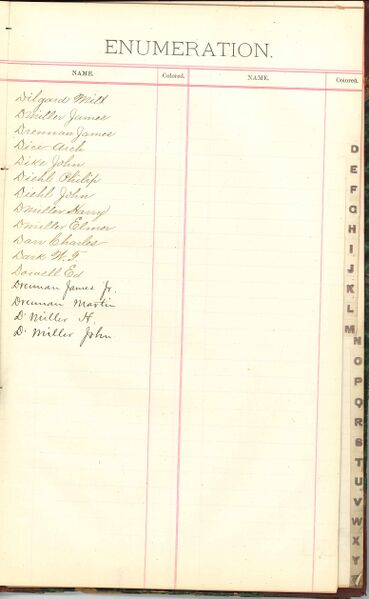 ENUMERATION.
NAME. Colored. NAME. Colored.
Dilgard Milt
Dmiller James
Drennan James
Dice Arch
Dike John
Diehl Philip
Diehl John
Dmiller Harry
Dmiller Elmer
Darr Charles
Dark W. T.
Dowell Ed
Drennan James Jr.
Drennan Martin
D. Miller H.
D. Miller John
D
E
F
G
H
I
J
K
L
M
N
O
P
Q
R
S
T
U
V
W
X
Y